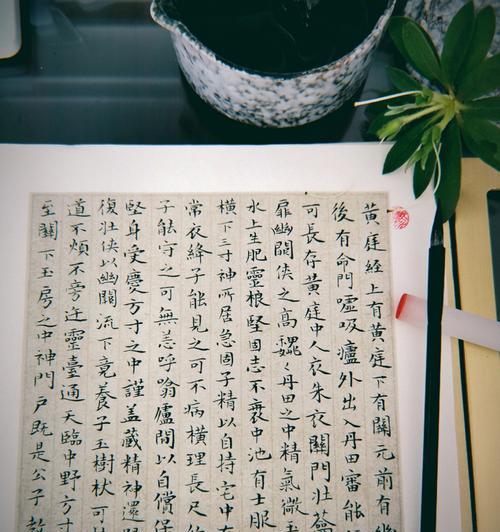 黃庭經上有黃庭下有關元前有
後有命門噓吸廬外出入丹田審能
可長存黃庭中人衣朱衣關門壯蘥
扉幽闕俠之高巍〻丹田之中精氣微玉
水上生肥靈根堅固志不衰中池有士服
橫下三寸神所居急固子精以自持宅中有
常衣絳子能見之可不病橫理長尺約
子能守之可無恙呼噏廬間以自償保
堅身受慶方寸之中謹蓋藏精神還歸
復壯俠以幽闕流下竟養子玉樹杕可
道不煩不旁迕靈臺通天臨中野方寸
至關下玉房之中神門戶既是公子教